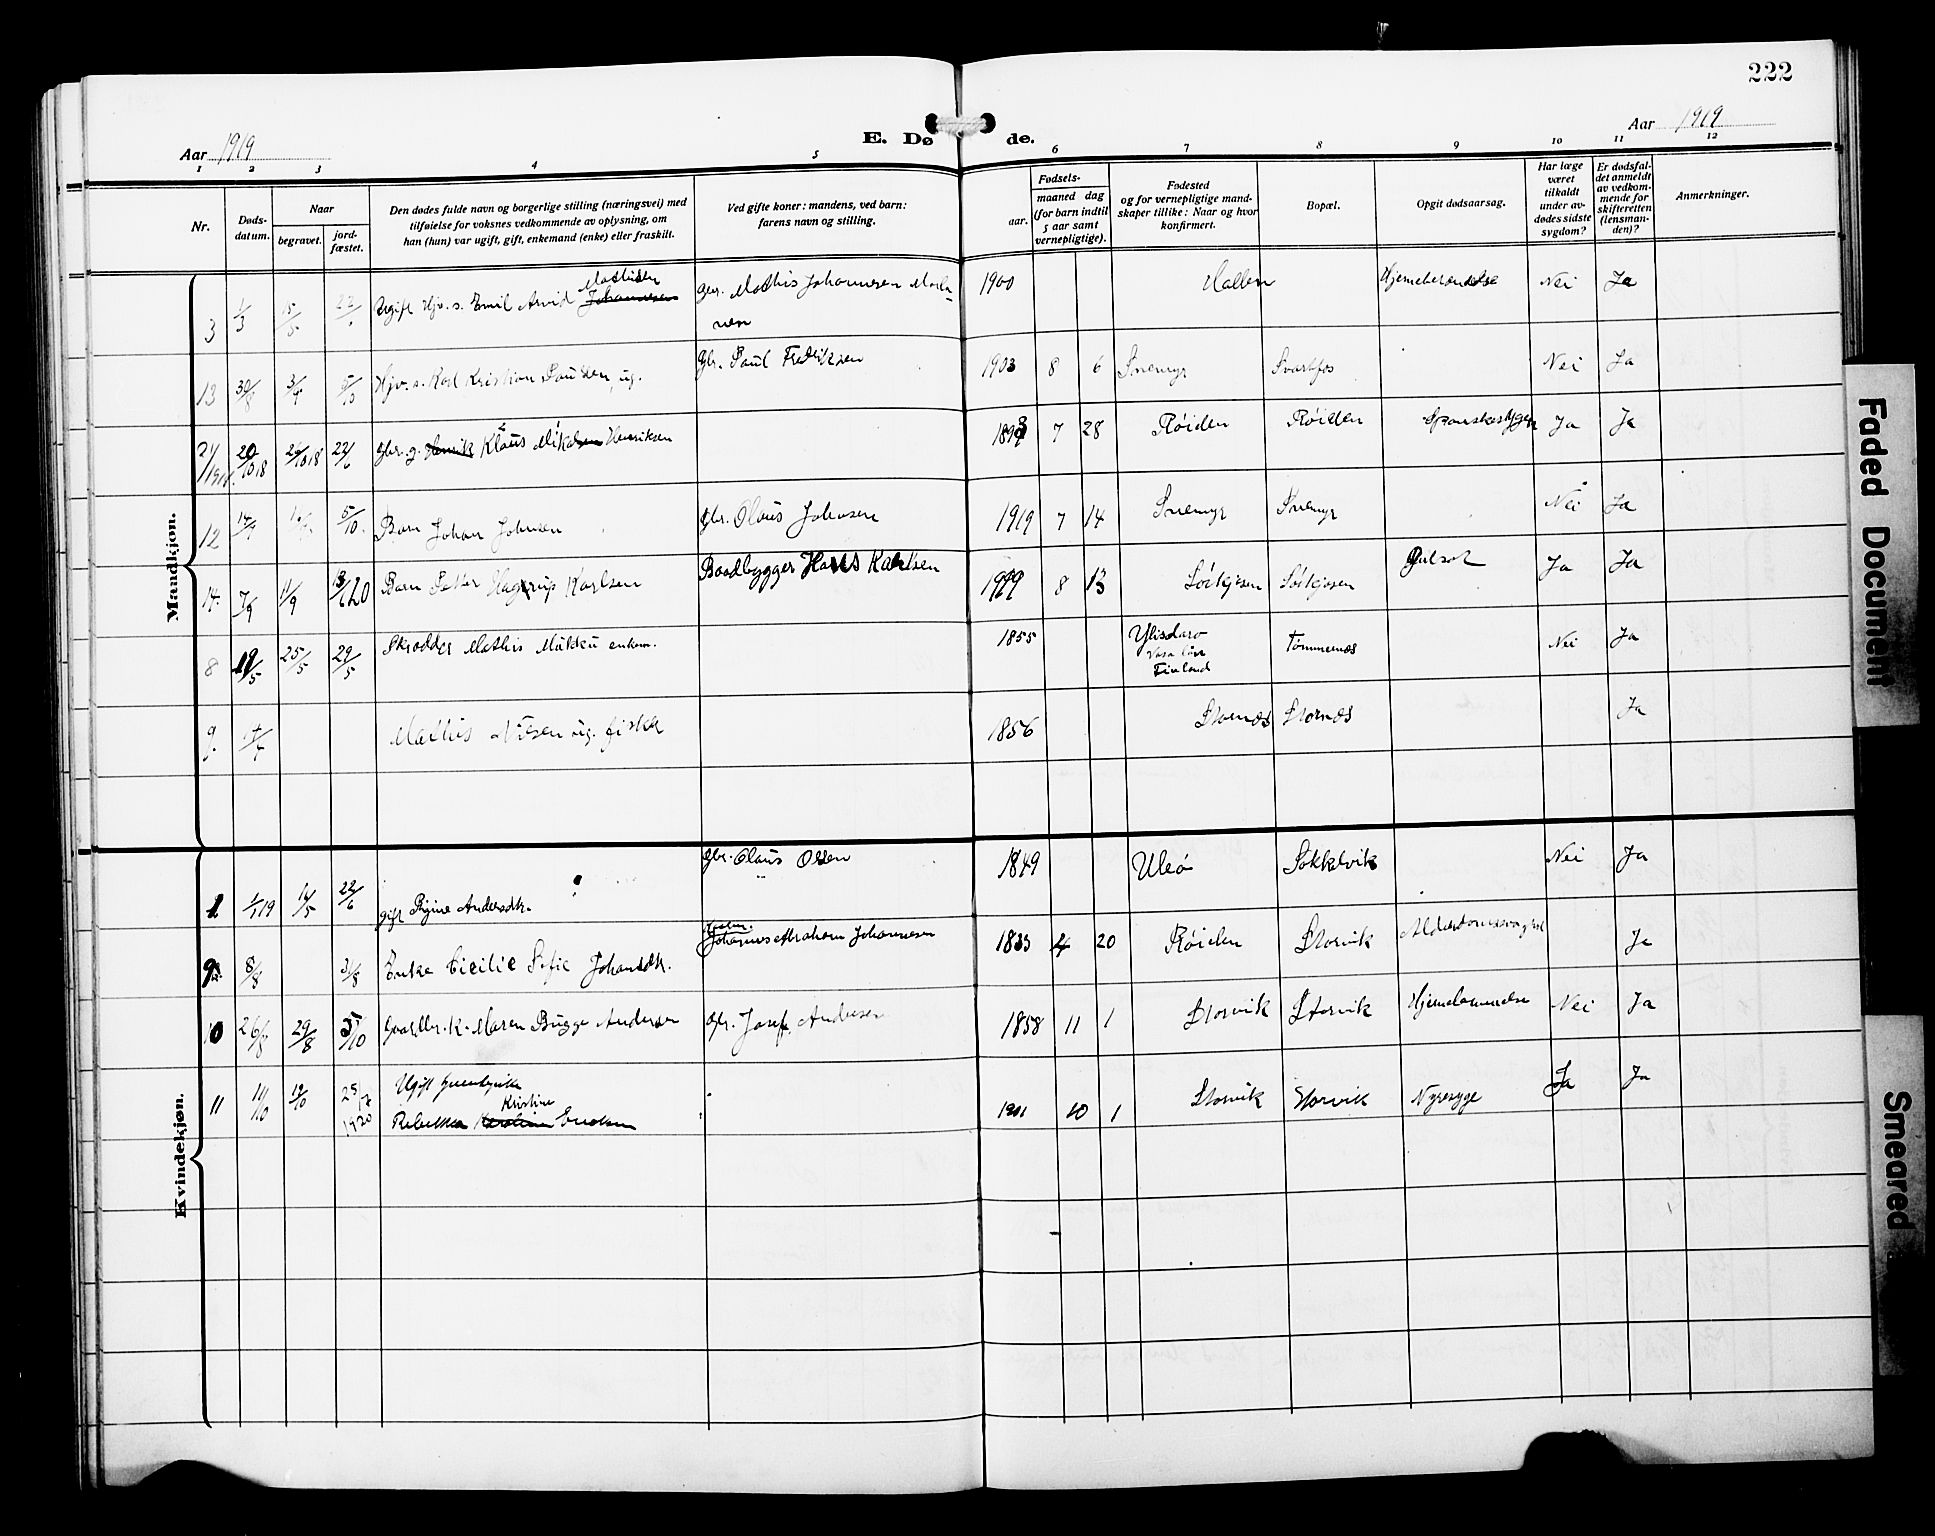 222
Aar 1919
E. Døde.
Aar 1919
1 2 3 4 5 6 7 8 9 10 11 12
Nr.
Døds-
datum.
Naar
begravet.
jord-
fæstet.
Den dødes fulde navn og borgerlige stilling (næringsvei) med
tilføielse for voksnes vedkommende av oplysning, om
han (hun) var ugift, gift, enkemand (enke) eller fraskilt.
Ved gifte koner: mandens, ved barn:
farens navn og stilling.
Fødsels-
aar.
maaned dag
(for barn indtil
5 aar samt
vernepligtige).
Fødested
og for vernepligtige mand-
skaper tillike: Naar og hvor
konfirmert.
Bopæl.
Opgit dødsaarsag.
Har læge
været
tilkaldt
under av-
dødes sidste
sygdom?
Er dødsfal-
det anmeldt
av vedkom-
mende for
skifteretten
(lensman-
den)?
Anmerkninger.
Mandkjøn.
3 1/3 15/5 Ugift Hjv. s. Emil Arvid Johannesen Gbr. Mathis Johannesen 1900 Hallen Nei Ja
13 30/8 5/10 Hjv. s. Karl Kristian Paulsen, ug. Gbr. Paul Fredriksen 1903 8 6 Snemyr Svartfos Nei Ja
21/ 20/10 18 26/10 18 22/6 Gbr. g. Henrik Klaus Mikalsen Henriksen 7 28 Røiden Røiden Spanskesygen Ja Ja
12 14/9 5/10. Barn Johan Johnsen Gbr. Olaus Johnsen 1919 7 14 Snemyr Snemyr Nei Ja
14. 7/9 11/9 Barn Petter Hagerup Karlsen Baadbygger Hans Karlsen 1919 8 13 Sørkjosen Sørkjosen Gulsot Ja Ja
8 19/5 25/5 29/5 Skrædder Mathis enkem. 1855 Ylistaro
Vasa län
Finland Tømmernes Nei Ja
9. Mathis Nilsen ug. fisker 1856 Stornes Stornes Ja
Kvindekjøn.
1 1/1 19 22/6 gift Regine Andersdtr. Gbr. Olaus Olsen 1849 Uløi Sokkelvik Nei Ja
9 8/8 31/8 Enke Cicilie Sofie Johansdtr. Johannes Abraham Johannesen 1833 4 20 Røiden Storvik Alderdomssvaghet Ja
10 26/8 29/8 5/10 Gaardbr. k. Maren Bugge Andersen Gbr. Josef Andersen 1858 11 1 Storvik Storvik Nei Ja
11 11/10 Ugift
Kristine
Rebekka Karoline 1901 10 1 Storvik Storvik Nyresyge Ja Ja
1920
Faded Document
Smeared